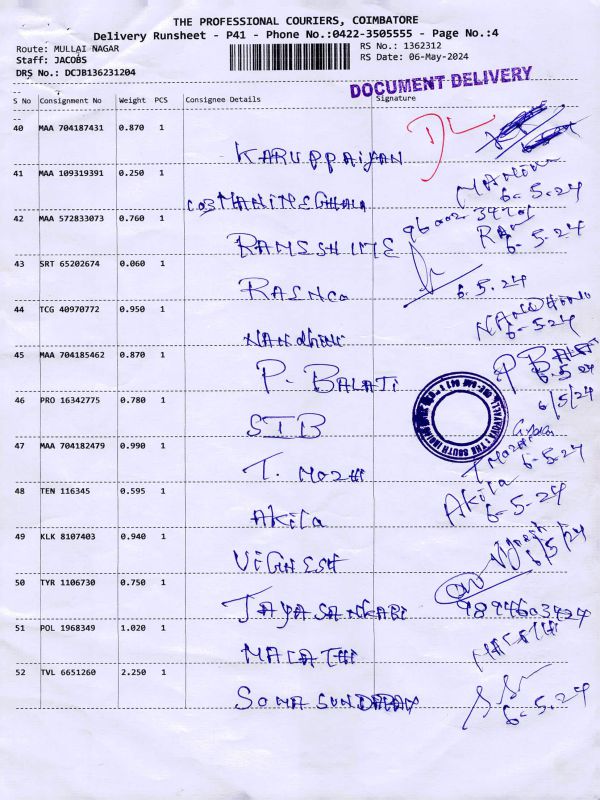 THE PROFESSIONAL COURIERS, COIMBATORE
Delivery Runsheet - P41 - Phone No.:0422-3505555 - Page No.:4
Route: MULLAI NAGAR
Staff: JACOBS
DRS No.: DCJB136231204
RS No.: 1362312
RS Date: 06-May-2024
DOCUMENT DELIVERY
S No Consignment No Weight PCS Consignee Details Signature
40 MAA 704187431 0.870 1
KARUPPAIYAN
41 MAA 109319391 0.250 1
MANIMEGHALA 6-5-24
42 MAA 572833073 0.760 1
RAM 6-5.24
43 SRT 65202674 0.060 1
6.5.24
44 TCG 40970772 0.950 1
Nandhini NANDHINI 6-5.24
45 MAA 704185462 0.870 1
P. BALAJI P BALAJI 6.5.24
46 PRO 16342775 0.780 1
SIB 6/5/24
47 MAA 704182479 0.990 1
T. MOZHI T MOZHI 6-5.24
48 TEN 116345 0.595 1
Akila Akila 6-5.24
49 KLK 8107403 0.940 1
VIGNESH Vignesh 6/5/24
50 TYR 1106730 0.750 1
JAYASANKARI 9894603424
51 POL 1968349 1.020 1
MALATHI MALATHI
52 TVL 6651260 2.250 1
SOMASUNDARAM 6-5.24